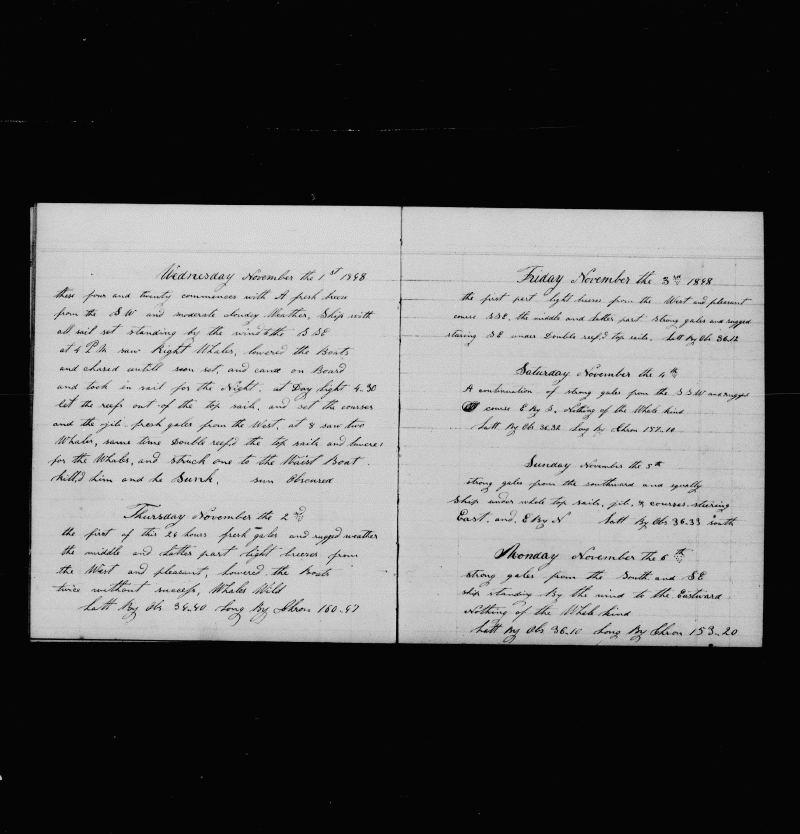 Wednesday November the 1st 1848
these four and twenty commences with A fresh breeze
from the S W and moderate cloudy Weather, Ship with
all sail set standing by the wind to the S SE
at 4 P M saw Right Whales, lowered the Boats
and chased untill soon set, and came on Board
and took in sail for the Night. at Day light 4-30
let the reefs out of the top sails, and set the courses
and the jib. fresh gales from the West, at 8 saw two
Whales, same time Double reef'd the top sails and lowered
for the Whales, and struck one to the Waist Boat.
kill'd him and he Sunk. sun Obscured
Thursday November the 2nd
the first of this 24 hours fresh gales and rugged weather
the middle and Latter part light breezes from
the West and pleasant, lowered the Boats
twice without success, Whales Wild
Latt By Obs 36-40 Long By Chron 160-47
Friday November the 3rd 1848
the first part light breezes from the West and pleasant
course SSE, the middle and latter part strong gales and rugged
stearing SE under Double reef'd top sails. Latt By Obs 36.12
Saturday November the 4th
A continuation of strong gales from the S S W and rugged
course E By S, Nothing of the Whale kind
Latt By Obs 36.32 Long By Chron 157-10
Sunday November the 5th
strong gales from the southward and squally
Ship under whole top sails, jib, & courses. steering
East, and, E By N Latt By Obs 36.33 South
Monday November the 6th
strong gales from the South and SE
ship standing By the wind to the Eastward
Nothing of the Whale kind
Latt By Obs 36-10 Long By Chron 153-20